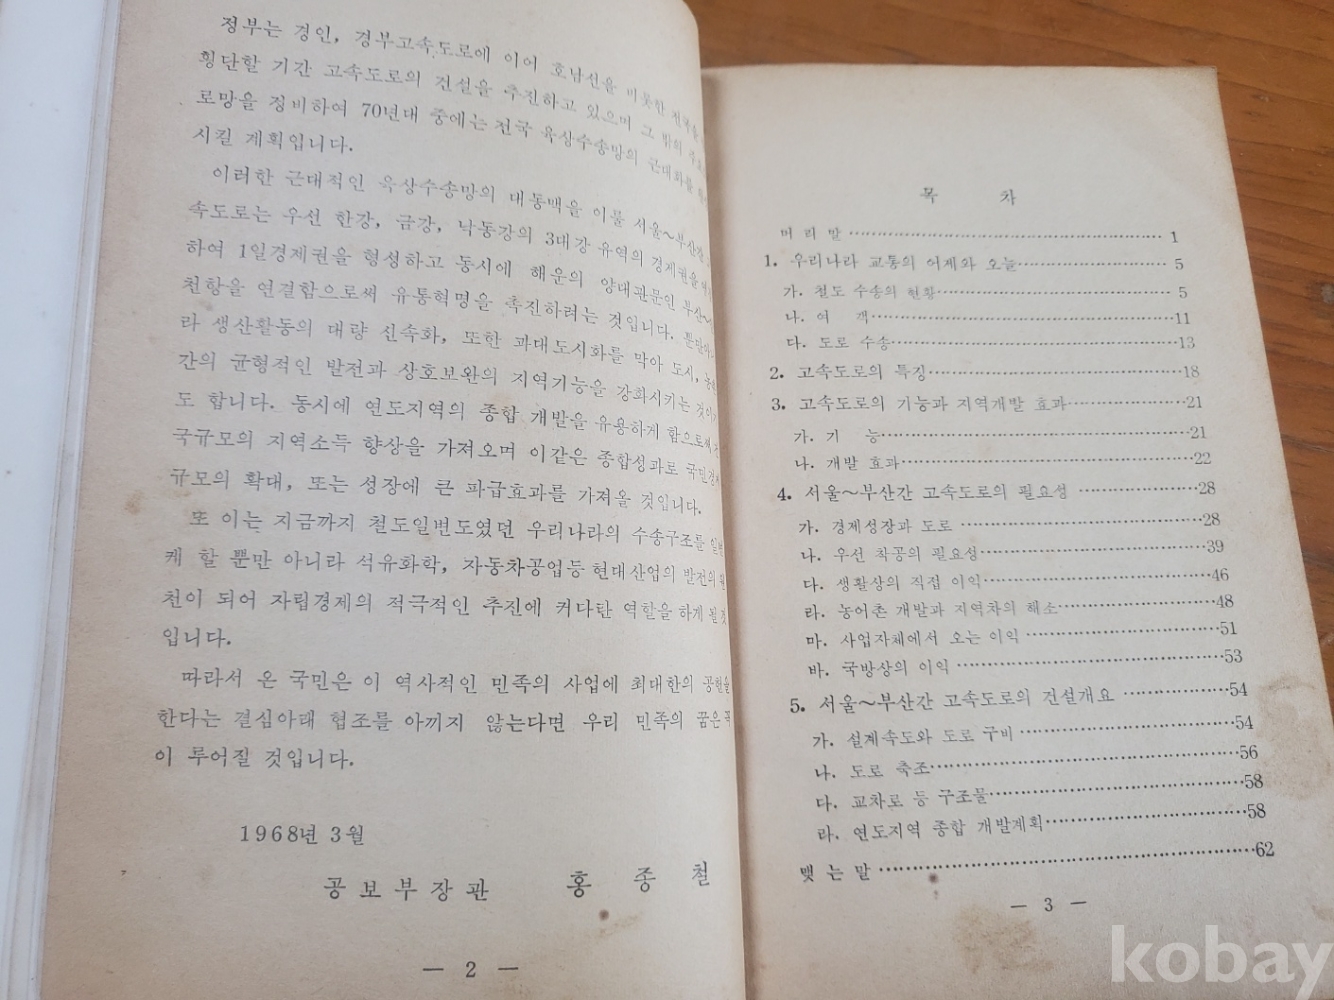 정부는 경인, 경부고속도로에 이어 호남선을 비롯한
횡단할 기간 고속도로의 건설을 추진하고 있으며 그 밖의
로망을 정비하여 70년대 중에는 전국 육상수송망의 근대화를
시킬 계획입니다.
이러한 근대적인 육상수송망의 대동맥을 이룰 서울～부산간
속도로는 우선 한강, 금강, 낙동강의 3대강 유역의 경제권을
하여 1일경제권을 형성하고 동시에 해운의 양대관문인 부산～
천항을 연결함으로써 유통혁명을 촉진하려는 것입니다.
라 생산활동의 대량 신속화, 또한 과대도시화를 막아 도시,
간의 균형적인 발전과 상호보완의 지역기능을 강화시키는
도 합니다. 동시에 연도지역의 종합 개발을 유용하게 함으로써
국규모의 지역소득 향상을 가져오며 이같은 종합성과로
규모의 확대, 또는 성장에 큰 파급효과를 가져올 것입니다.
또 이는 지금까지 철도일변도였던 우리나라의 수송구조를
케 할 뿐만 아니라 석유화학, 자동차공업등 현대산업의 발전의 원
천이 되어 자립경제의 적극적인 추진에 커다란 역할을 하게 될 것
입니다.
따라서 온 국민은 이 역사적인 민족의 사업에 최대한의 공헌을
한다는 결심아래 협조를 아끼지 않는다면 우리 민족의 꿈은 꼭
이 루어질 것입니다.
1968년 3월
공보부장관 홍종철
— 2 —
목 차
머 리 말 1
1. 우리나라 교통의 어제와 오늘 5
가. 철도 수송의 현황 5
나. 여 객 11
다. 도로 수송 13
2. 고속도로의 특징 18
3. 고속도로의 기능과 지역개발 효과 21
가. 기 능 21
나. 개발 효과 22
4. 서울～부산간 고속도로의 필요성 28
가. 경제성장과 도로 28
나. 우선 착공의 필요성 39
다. 생활상의 직접 이익 46
라. 농어촌 개발과 지역차의 해소 48
마. 사업자체에서 오는 이익 51
바. 국방상의 이익 53
5. 서울～부산간 고속도로의 건설개요 54
가. 설계속도와 도로 구비 54
나. 도로 축조 56
다. 교차로 등 구조물 58
라. 연도지역 종합 개발계획 58
맺 는 말 62
— 3 —
kobay